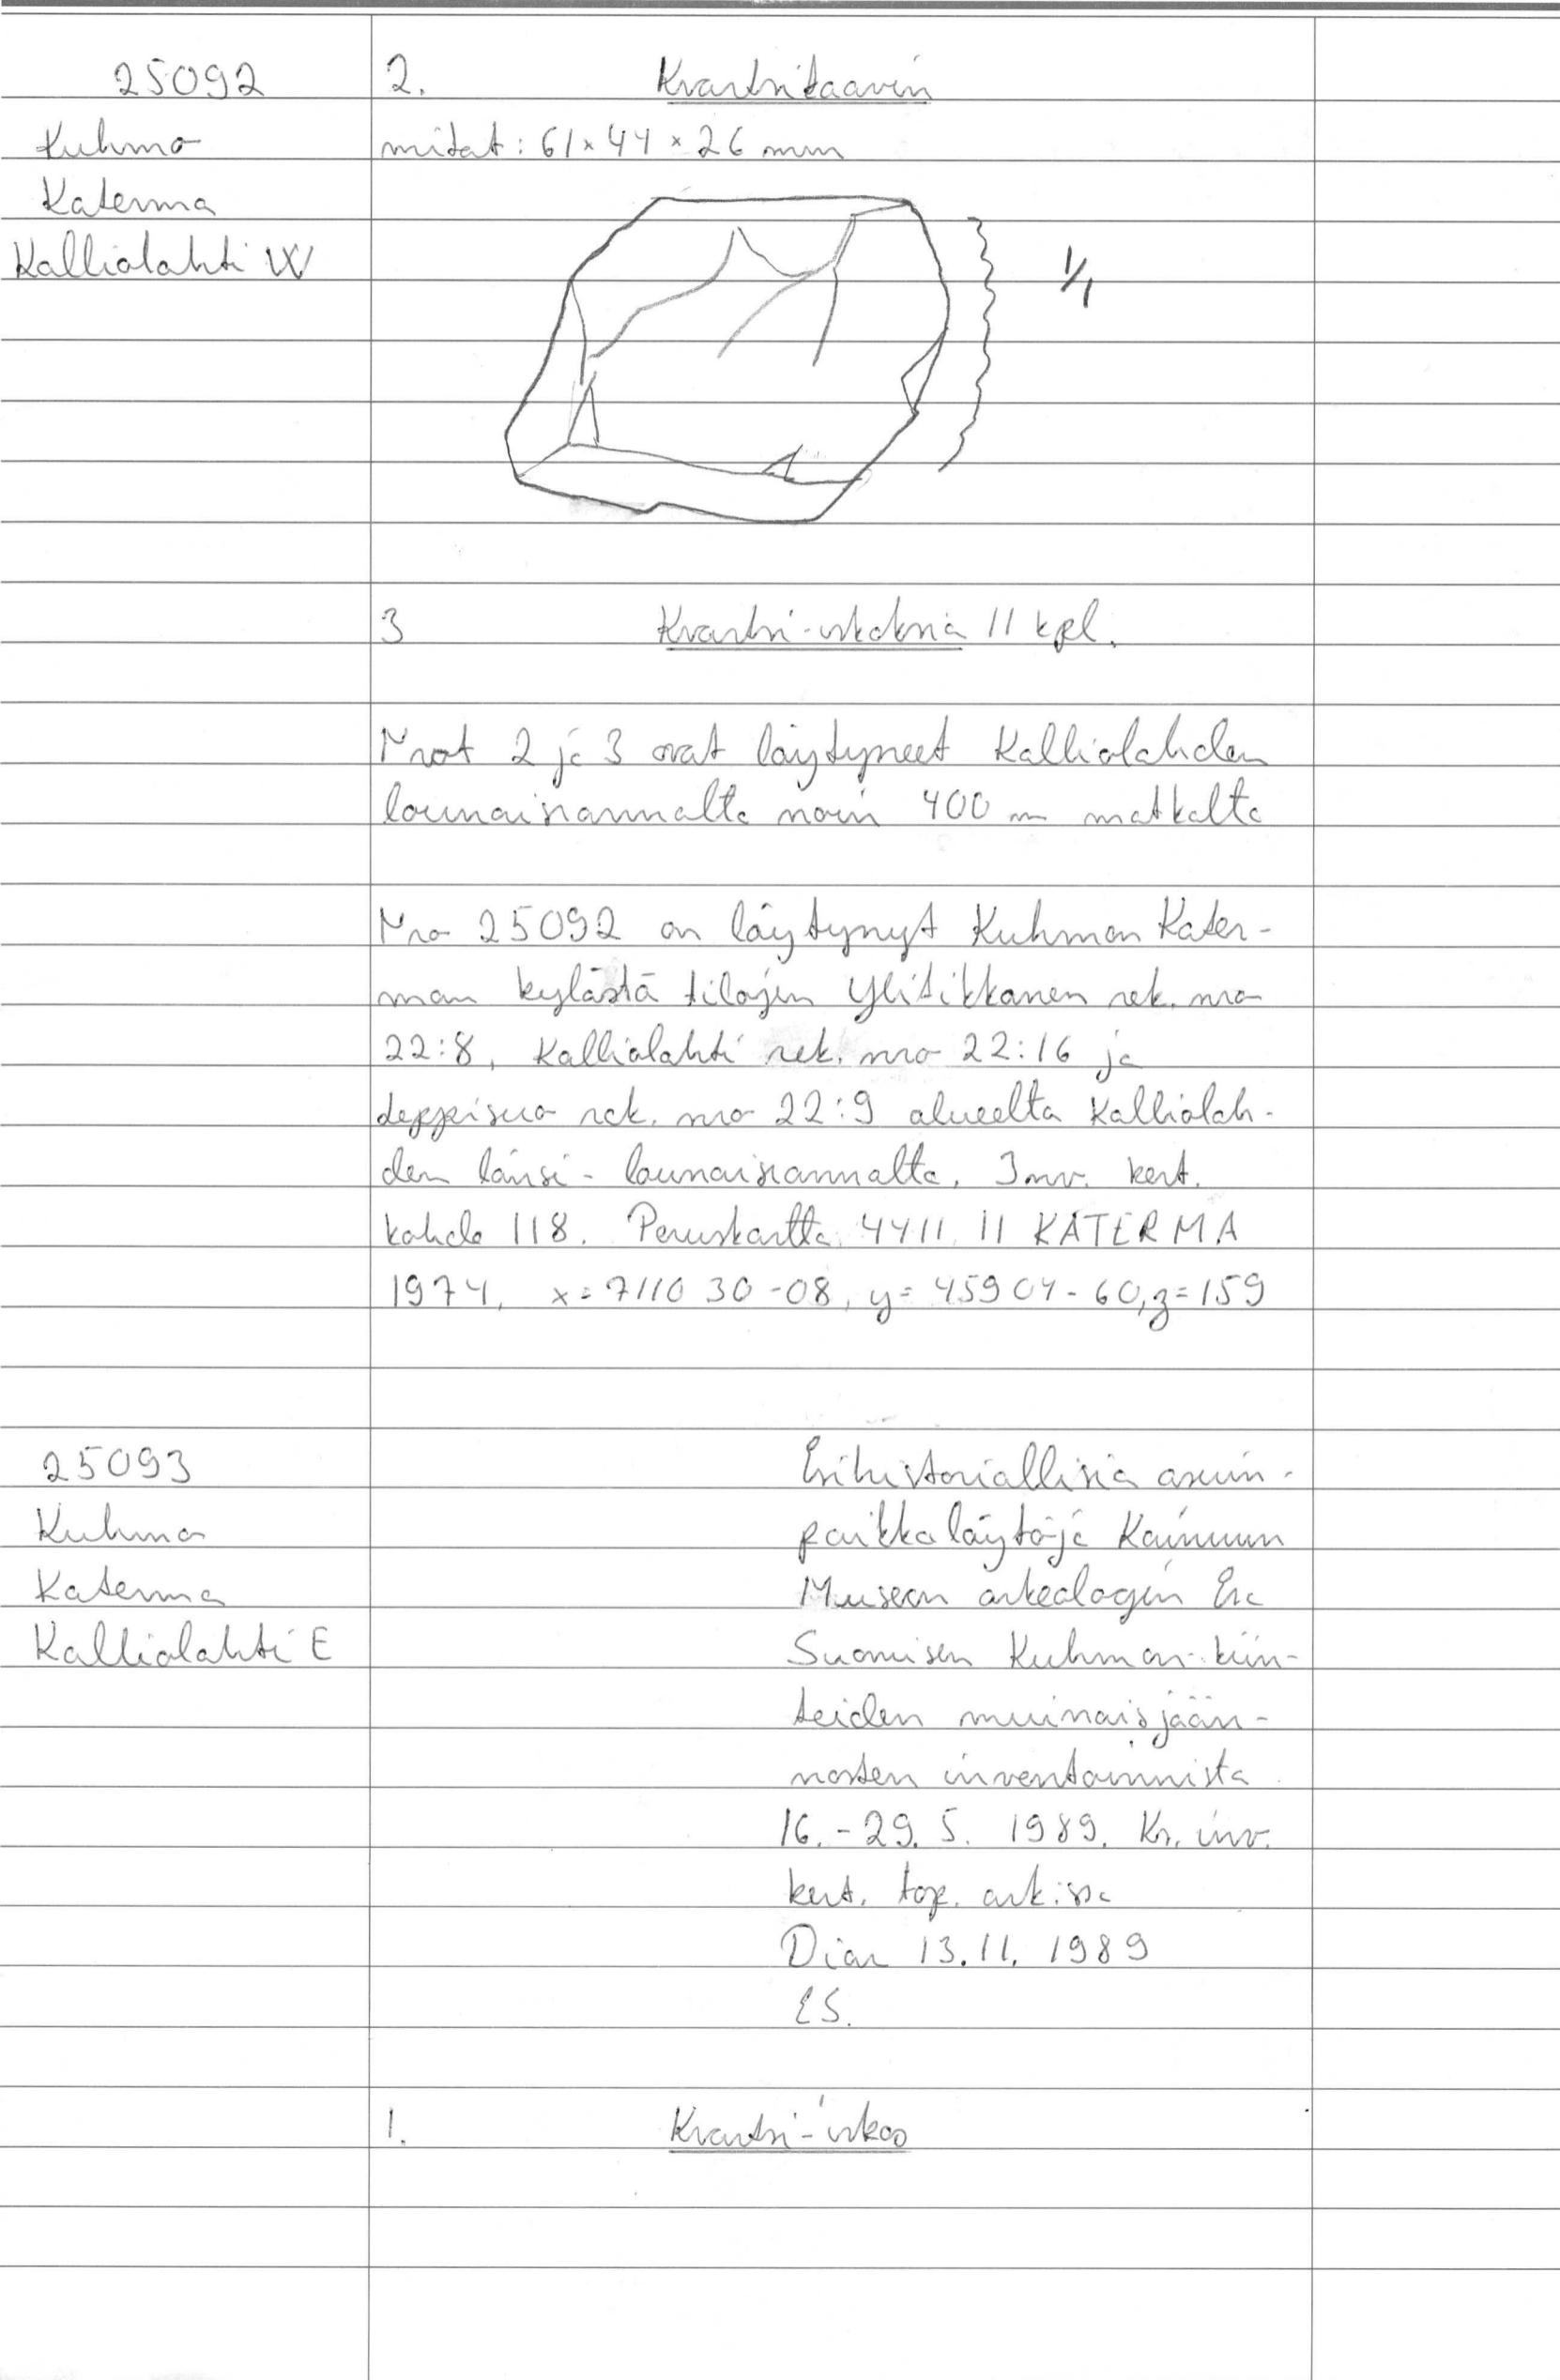 25092
Kuhmo
Katerma
Kalliolahti W
2. Kvartsikaavin
mitat: 61 x 44 x 26 mm
1/1
3 Kvartsi-iskoksia 11 kpl.
Nrot 2 ja 3 ovat löytyneet Kalliolahden
lounaisrannalta noin 400 m matkalta
Nro 25092 on löytynyt Kuhmon Kater-
man kylästä tilojen Ylitikkanen rek. nro
22:8, Kalliolahti rek. nro 22:16 ja
Leppisuo rek. nro 22:9 alueelta Kalliolah-
den länsi-lounaisrannalta. Inv. kert.
kohde 118. Peruskartta 4411 11 KATERMA
1974, x= 7110 30-08, y= 459 04-60, z=159
25093
Kuhmo
Katerma
Kalliolahti E
Esihistoriallisia asuin-
paikkalöytöjä Kainuun
Museon arkeologin Esa
Suomisen Kuhmon kiin-
teiden muinaisjään-
nösten inventoinnista
16.-29.5. 1989. Ks. inv.
kert. top. ark:ssa
Diar 13.11. 1989
ES.
1. Kvartsi-iskos